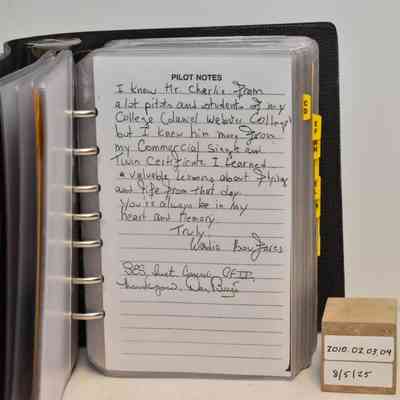 PILOT NOTES
I know Mr. Charlie From
a lot pilots and students of my
College Colonel Webster College
but I knew him more From
my Commercial Single and
Twin Certificate I learned
a valuable lessons about Flying
and life from that day.
You're always be in my
heart and Memory.
Truly.
CFII.
2010.02.03.09
8/5/25